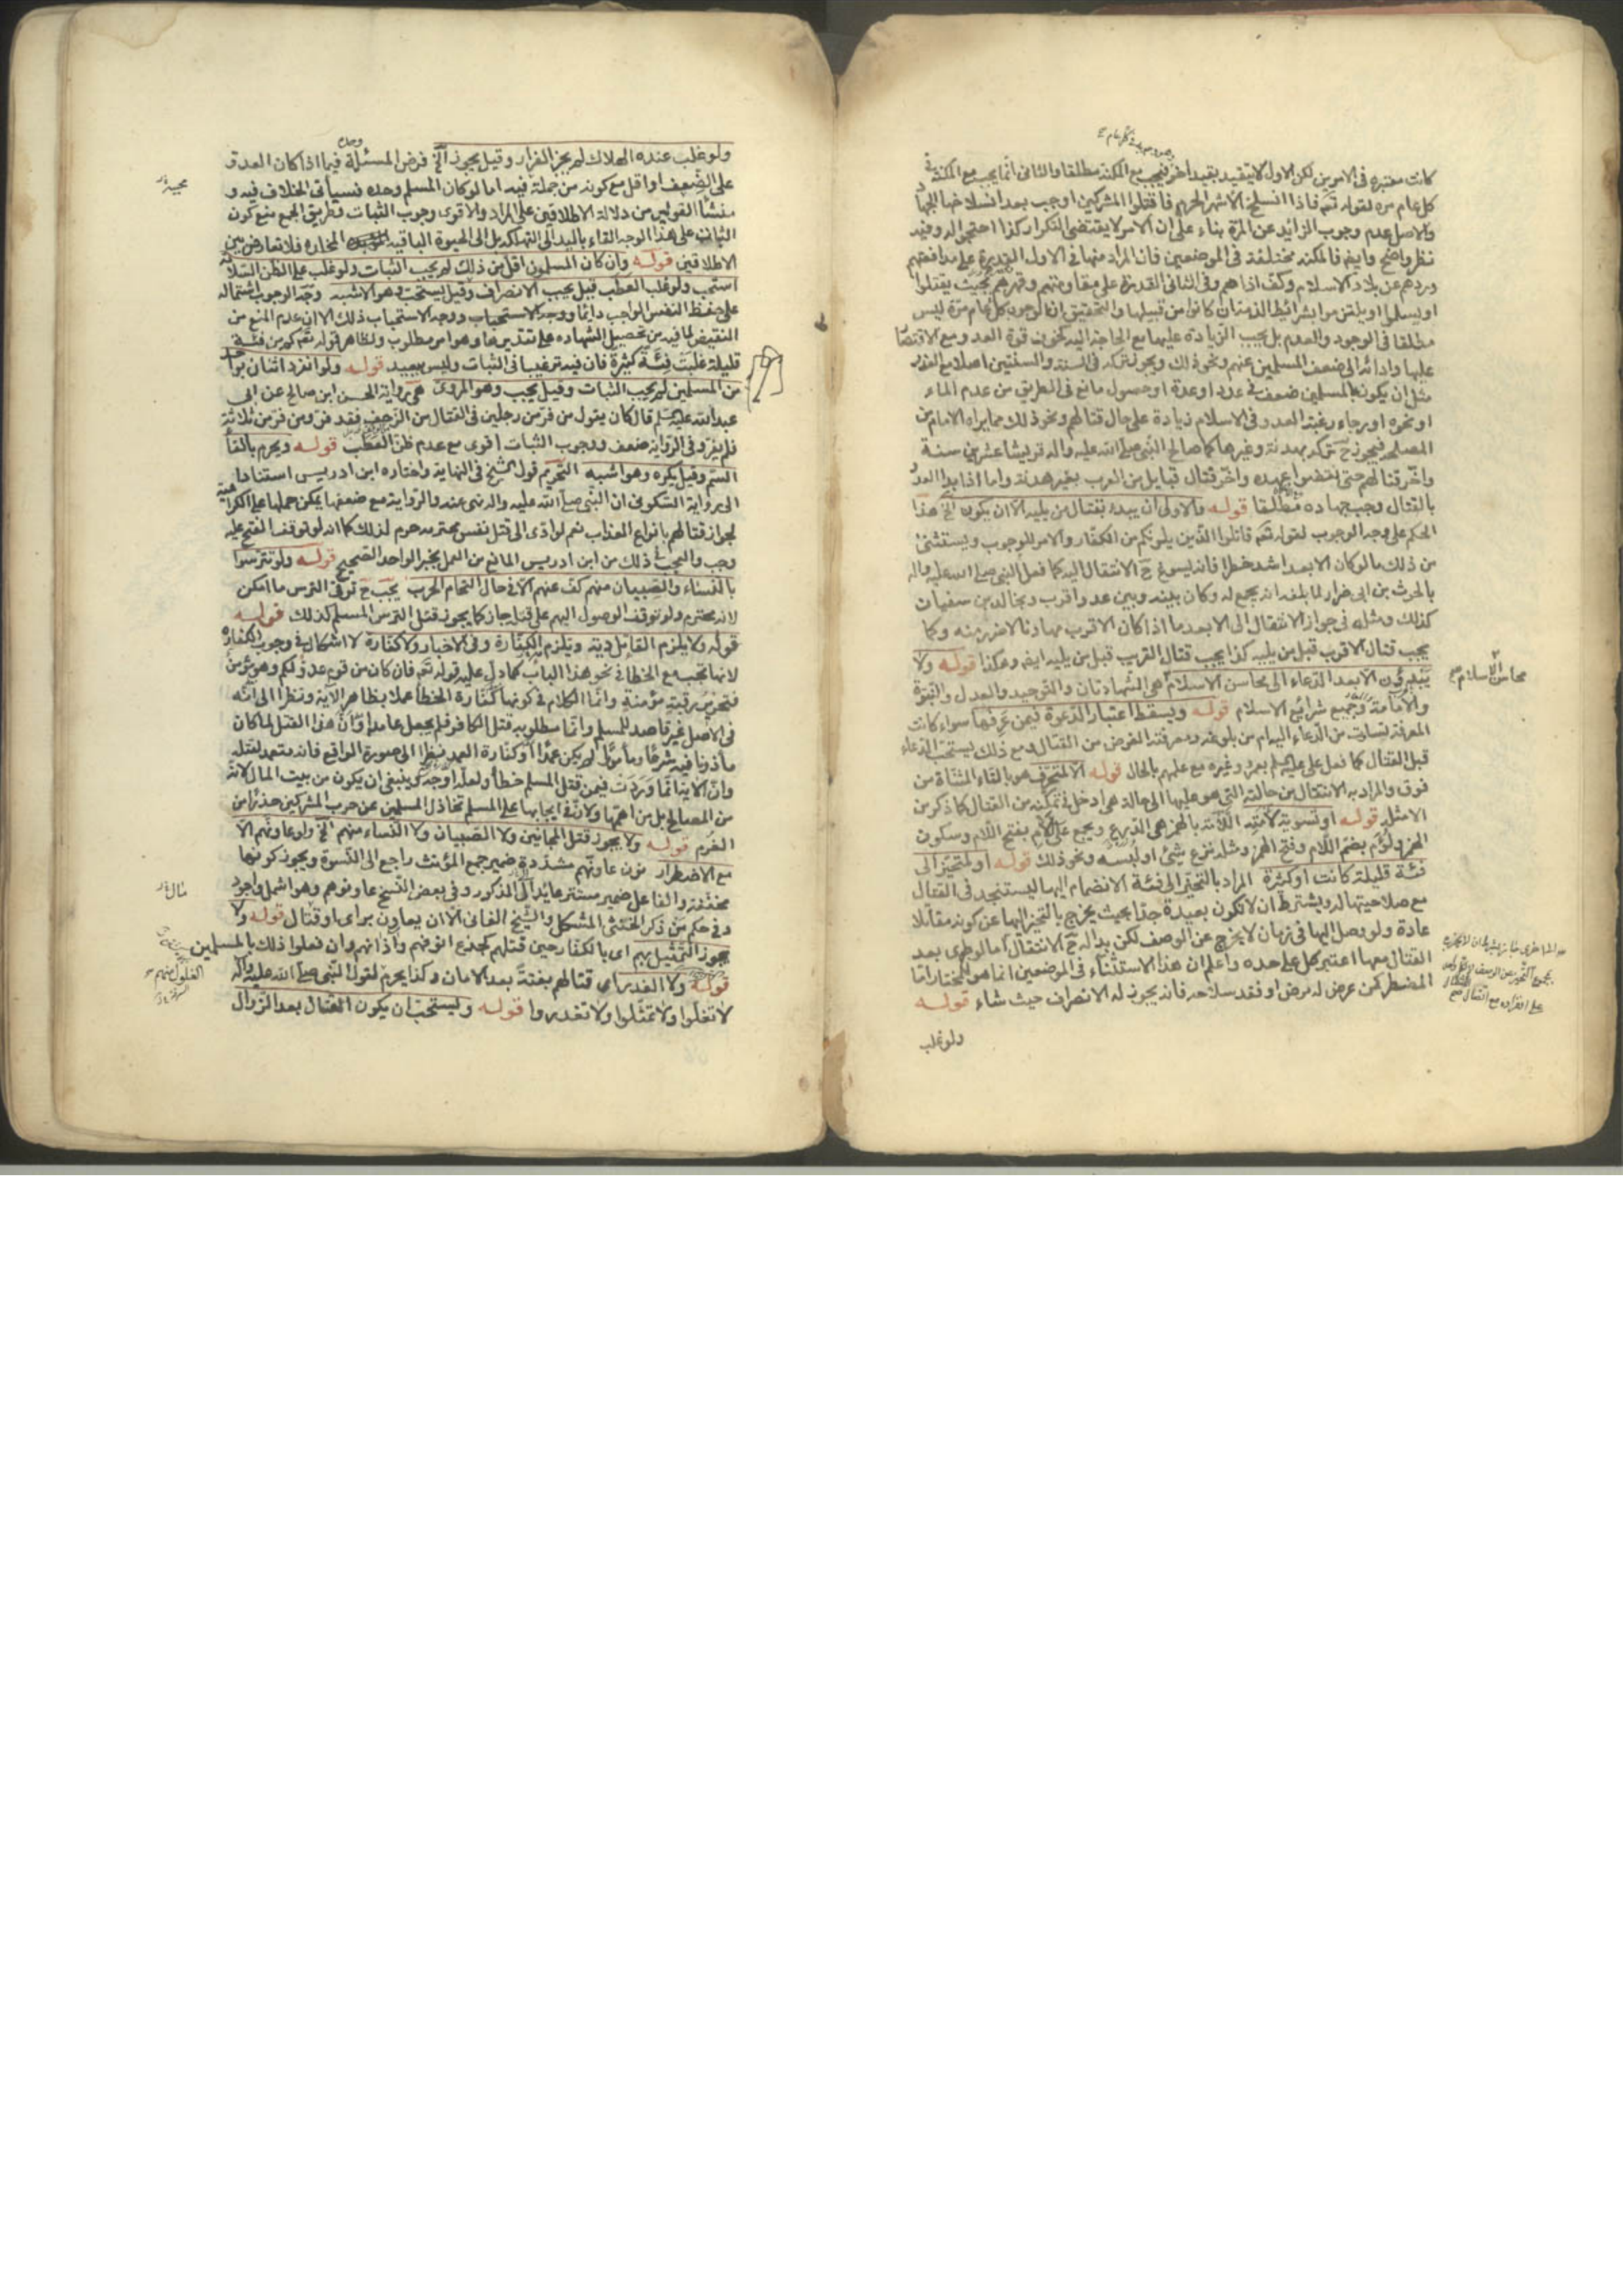 كانت معتبره فى الامرين لكن الاول لا يتقيد بقيد اخر فيجب مع المكنة مطلقا والثانى انما يجب مع المكنة فى
كل عام مره لقوله تعه فاذا انسلخ الاشهر الحرم فاقتلوا المشركين اوجب بعد انسلاخها الجهاد
والاصل عدم وجوب الزائد عن المرة بناء على ان الامر لا يقتضى التكرار كذا احتجوا له وفيه
نظر واضح وايضا فالمكنة مختلفة فى الموضعين فان المراد منها فى الاول القدرة على مدافعتهم
وردهم عن بلاد الاسلام وكف اذاهم وفى الثانى القدرة على مقاومتهم وقهرهم بحيث يقتلوا
او يسلموا او يلتزموا بشرائط الذمة ان كانوا من قبيلها والتحقيق ان الوجوب كل عام مرة ليس
مطلقا فى الوجود والعدم بل يجب الزيادة عليها مع الحاجة اليه كخوف قوة العدو مع الاقتصار
عليها وادائه الى ضعف المسلمين عنهم ونحو ذلك ويجوز تركه فى السنة والسنتين اصلا مع العذر
مثل ان يكون بالمسلمين ضعف فى عدد او عدة او حصول مانع فى الطريق من عدم الماء
او نحوه او رجاء رغبة العدو فى الاسلام زيادة على حال قتالهم ونحو ذلك مما يراه الامام من
المصلحة فيجوز ح تركه بهدنة وغيرها كما صالح النبى صلى الله عليه واله قريشا عشر سنة
واخر قتالهم حتى نقضوا عهده واخر قتال قبايل من العرب بغير هدنة واما اذا بدأ العدو
بالقتال وجب جهاده مطلقا قوله والاولى ان يبدء بقتال من يليه الا ان يكون الخ هذا
الحكم على وجه الوجوب لقوله تعه قاتلوا الذين يلونكم من الكفار والامر للوجوب ويستثنى
من ذلك ما لو كان الابعد اشد خطرا فانه يسوغ ح الانتقال اليه كما فعل النبى صلى الله عليه واله
بالحرث بن ابى ضرار لما بلغه انه يجمع له وكان بينه وبين عدو اقرب وبخالد بن سفيان
كذلك ومثله فى جواز الانتقال الى الابعد ما اذا كان الاقرب مهادنا لا ضرر منه وكما
يجب قتال الاقرب قبل من يليه كذا يجب قتال القريب قبل من يليه ايضا وهكذا قوله ولا
يبدؤن الا بعد الدعاء الى محاسن الاسلام هى الشهادتان والتوحيد والعدل والنبوة
والامامة وجميع شرائع الاسلام قوله ويسقط اعتبار الدعوة فيمن عرفها سواء كانت
المعرفة بسابق من الدعاء اليهام من بلوغه ومعرفته الغرض من القتال ومع ذلك يستحب الدعاء
قبل القتال كما فعل على عليه السلم بعمرو وغيره مع علمهم بالحال قوله الا لمتحرف هو بالتاء المثناة من
فوق والمراد به الانتقال من حالته التى هو عليها الى حالة هى ادخل فى تمكنه من القتال كما ذكر من
الامثلة قوله او تسوية لامته اللامة بالهمز هى الدرع ويجمع على لام بفتح اللام وسكون
الهمز ولؤم بضم اللام وفتح الهمز ومثله نزع شئ او لبسه ونحو ذلك قوله او لمتحيز الى
فئة قليلة كانت او كثرة المراد بالتحيز الى فئة الانضمام اليها ليستنجد فى القتال
مع صلاحيتها له ويشترط ان لا تكون بعيدة جدا بحيث يخرج بالتحيز اليها عن كونه مقاتلا
عادة ولو وصل اليها فى زمان لا يخرج عن الوصف لكن بدا له ح الانتقال اما لو طرى بعد
القتال معها اعتبر كل على حده واعلم ان هذا الاستثناء فى الموضعين انما هو للمختار اما
المضطر كمن عرض له مرض او فقد سلاحه فانه يجوز له الانصراف حيث شاء قوله
ولو غلب
محاسن الاسلام صح
ولو غلب عنده الهلاك لم يجز الفرار وقيل يجوز الخ فرض المسئلة فيما اذا كان العدو
على الضعف او اقل مع كونه من جملة فيه اما لو كان المسلم وحده فسيأتى الخلاف فيه و
منشأ القولين من دلالة الاطلاقين على المراد والاقوى وجوب الثبات وطريق الجمع منع كون
الثبات على هذا الوجه القاء باليد الى التهلكة بل الى الحيوة الباقية المخلده فلا تعارض بين
الاطلاقين قوله وان كان المسلمون اقل من ذلك لم يجب الثبات ولو غلب على الظن السلامة
استحب ولو غلب العطب قيل يجب الانصراف وقيل يستحب وهو الاشبه وجه الوجوب اشتماله
على حفظ النفس الواجب دائما ووجه الاستحباب ذلك الا ان عدم المنع من
النقيض لما فيه من تحصيل الشهاده على تقديرها وهو امر مطلوب ولظاهر قوله تعه كم من فئة
قليلة غلبت فئة كثيرة فان فيه ترغيبا فى الثبات وليس ببعيد قوله ولو انفرد اثنان بواحد
من المسلمين لم يجب الثبات وقيل يجب وهو المروى هى رواية الحسن ابن صالح عن ابى
عبد الله عليه السلم قال كان يقول من فر من رجلين فى القتال من الزحف فقد فر ومن فر من ثلاثة
فلم يفر وفى الرواية ضعف ووجوب الثبات اقوى مع عدم ظن العطب قوله ويحرم بالقاء
السم وقيل يكره وهو اشبه التحريم قول الشيخ فى النهاية واختاره ابن ادريس استنادا
الى رواية السكونى ان النبى صلى الله عليه واله نهى عنه والرواية مع ضعفها يمكن حملها على الكراهية
لجواز قتالهم بانواع العذاب نعم لو ادى الى قتل نفس محترمة حرم لذلك كما انه لو توقف الفتح عليه
وجب والعجب فى ذلك من ابن ادريس المانع من العمل بخبر الواحد الصحيح قوله ولو تترسوا
بالنساء والصبيان منهم كف عنهم الا فى حال التحام الحرب يجب ح توقى الترس ما امكن
لانه محترم ولو توقف الوصول اليهم على قتله جاز كما يجوز قتل الترس المسلم كذلك قوله
قوله ولا يلزم القاتل دية ويلزم الكفارة وفى الاخبار ولا كفارة لا اشكال فى وجوب الكفارة
لانها تجب مع الخطا فى نحو هذا الباب كما دل عليه قوله تعه فان كان من قوم عدو لكم وهو مؤمن
فتحرير رقبة مؤمنة وانما الكلام فى كونها كفارة الخطأ عملا بظاهر الاية ونظرا الى انه
فى الاصل غير قاصد للمسلم وانما مطلوبه قتل الكافر فلم يجعل عامدا وان هذا القتل لما كان
مأذونا فيه شرعا ومأمورا لم يكن عمدا او كفارة العمد نظرا الى صورة الواقع فانه متعمد لقتله
وان الاية انما وردت فيمن قتل المسلم خطأ ولعله اوجه وينبغى ان يكون من بيت المال لانه
من المصالح بل من اهمها ولان فى ايجابها على المسلم تخاذل المسلمين عن حرب المشركين حذرا من
الغرم قوله ولا يجوز قتل المجانين ولا الصبيان ولا النساء منهم الخ ولو عاونهم الا
مع الاضطرار نون عاونهم مشددة ضمير جمع المؤنث راجع الى النسوة ويجوز كونها
مخففة والفاعل ضمير مستتر عائد الى المذكور وفى بعض النسخ عاونوهم وهو اشمل واجود
وفى حكم من ذكر الخنثى المشكل والشيخ الفانى الا ان يعاون براى او قتال قوله ولا
يجوز التمثيل بهم اى بالكفار حين قتلهم كجدع انوفهم واذانهم وان فعلوا ذلك بالمسلمين
قوله ولا الغدر اى قتالهم بغتة بعد الامان وكذا يحرم لقول النبى صلى الله عليه واله
لا تغلوا ولا تمثلوا ولا تغدروا قوله ويستحب ان يكون القتال بعد الزوال
الغلول منهم